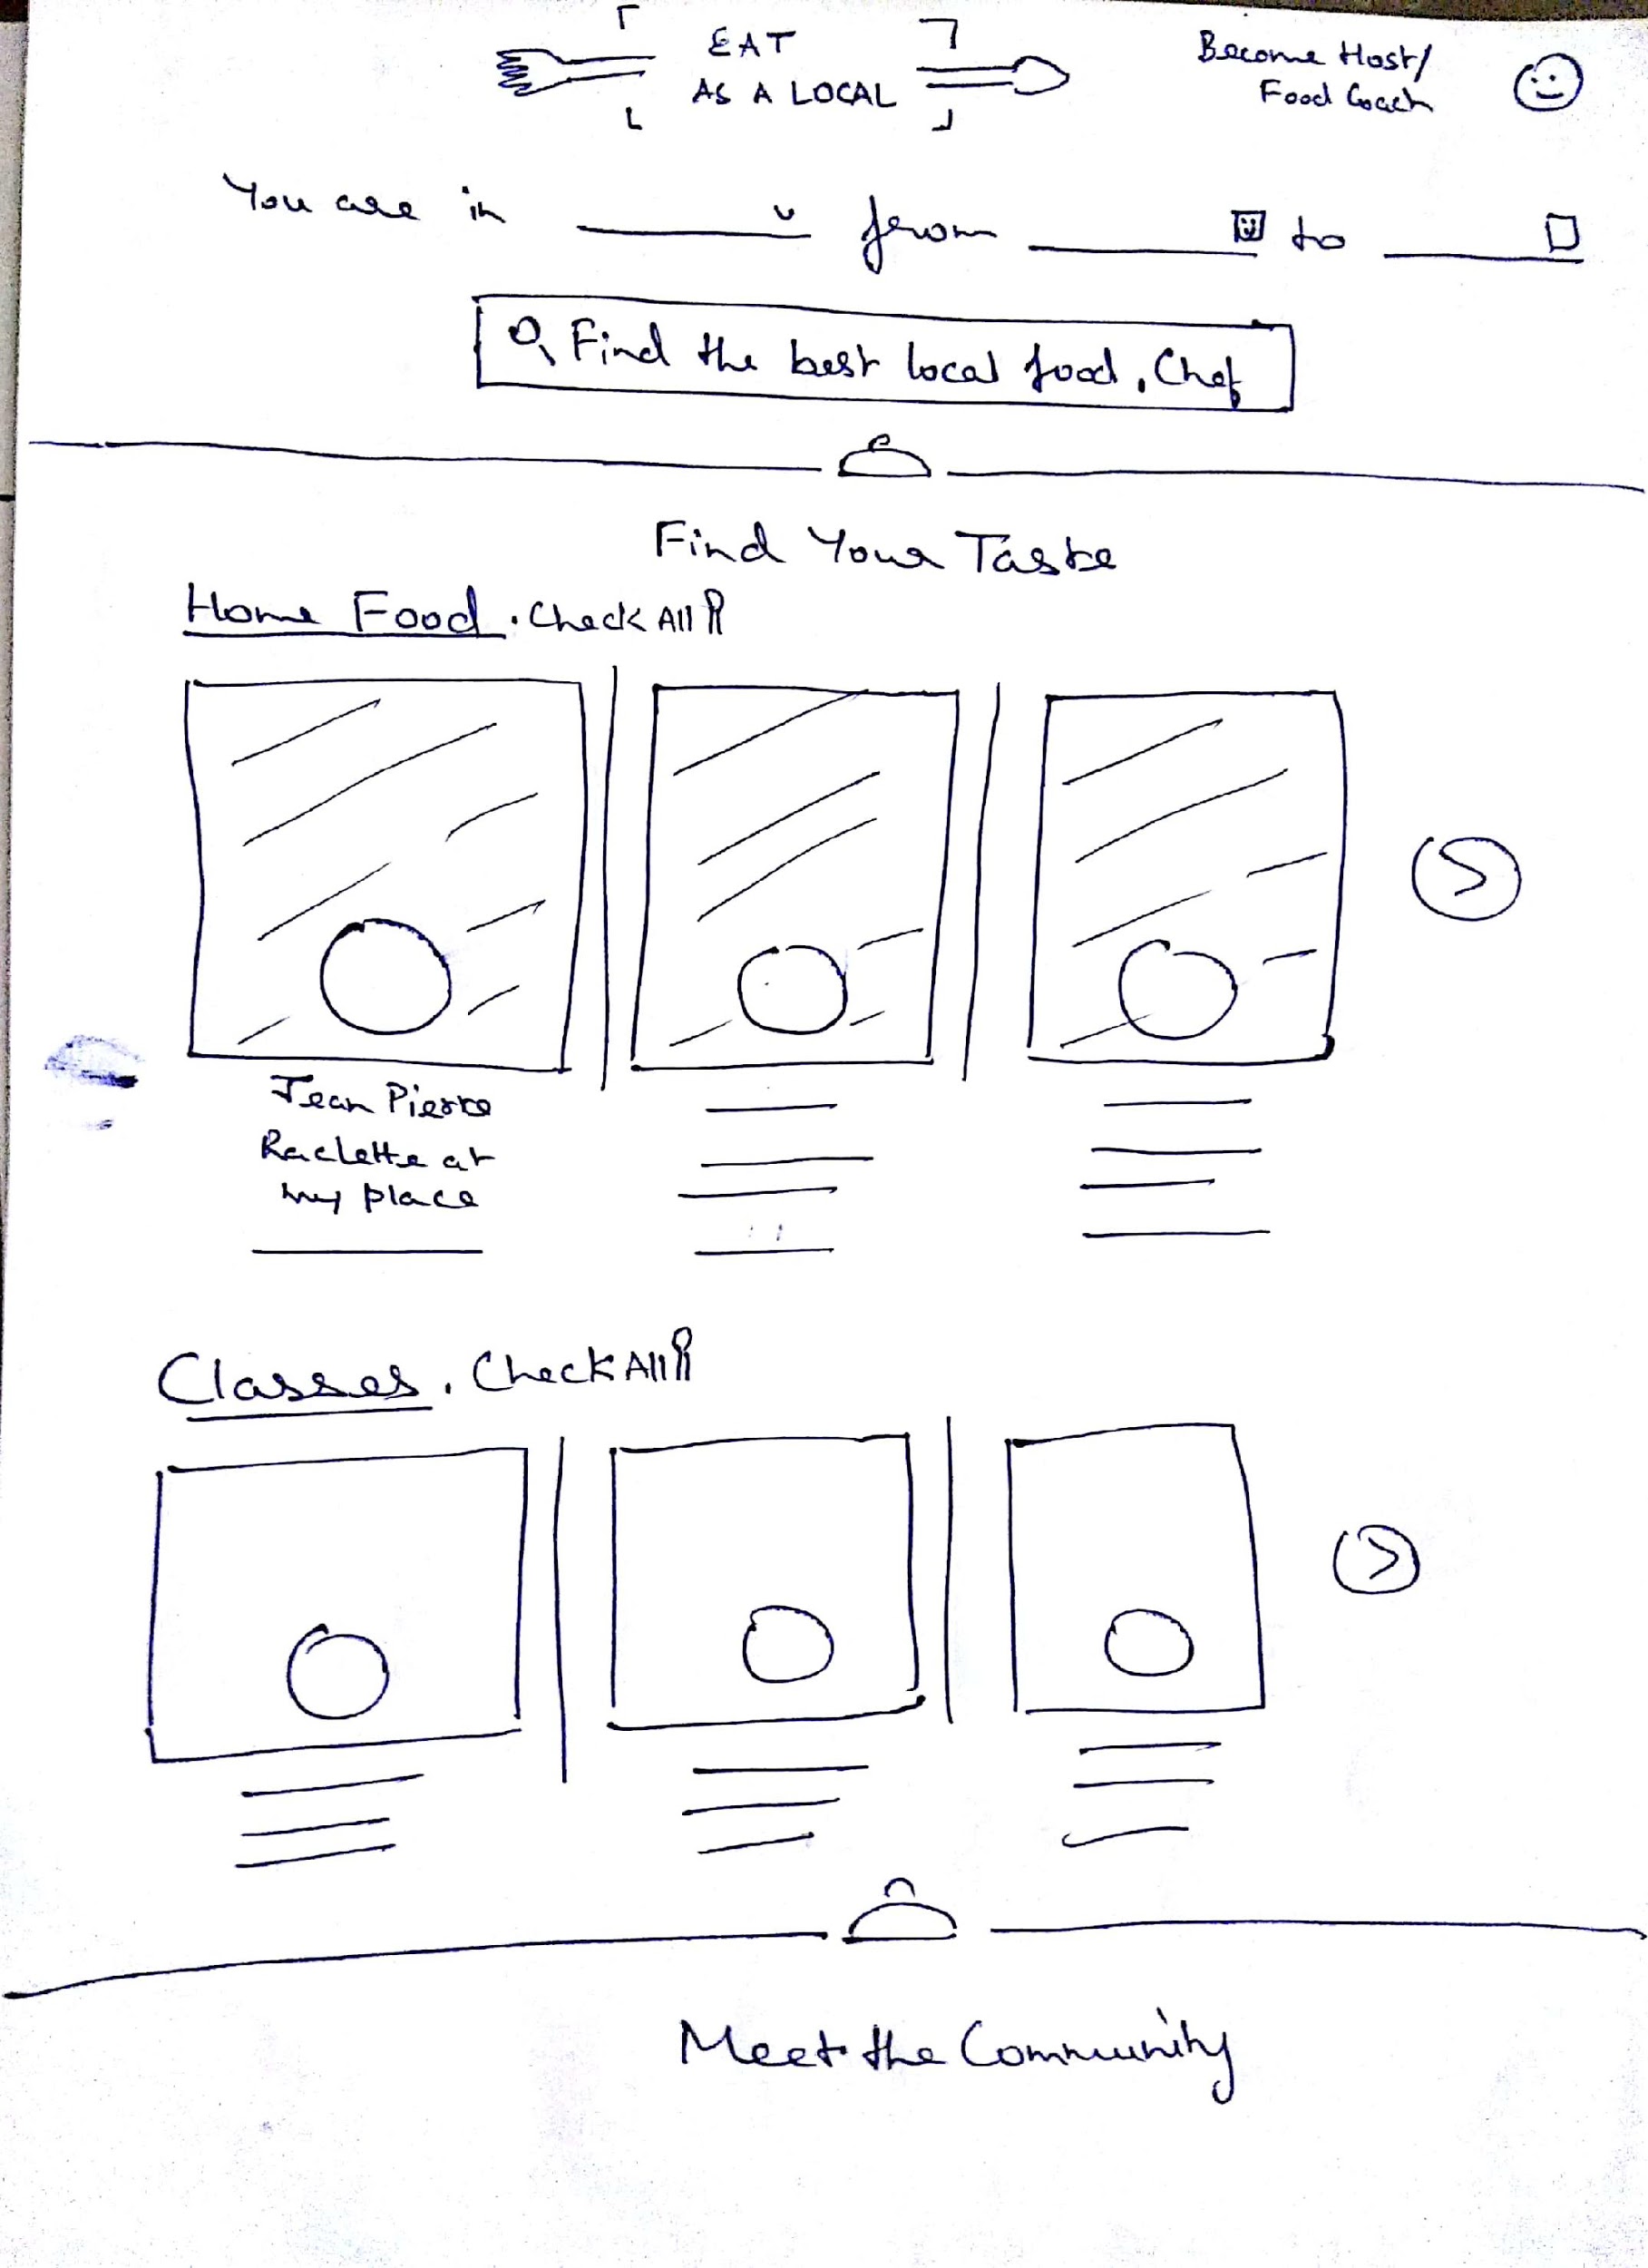 EAT
AS A LOCAL
Become Host/
Food Coach
You are in from to
Find the best local food, Chef
Find Your Taste
Home Food . Check All
Jean Pierre
Raclette at
my place
Classes . Check All
Meet the Community